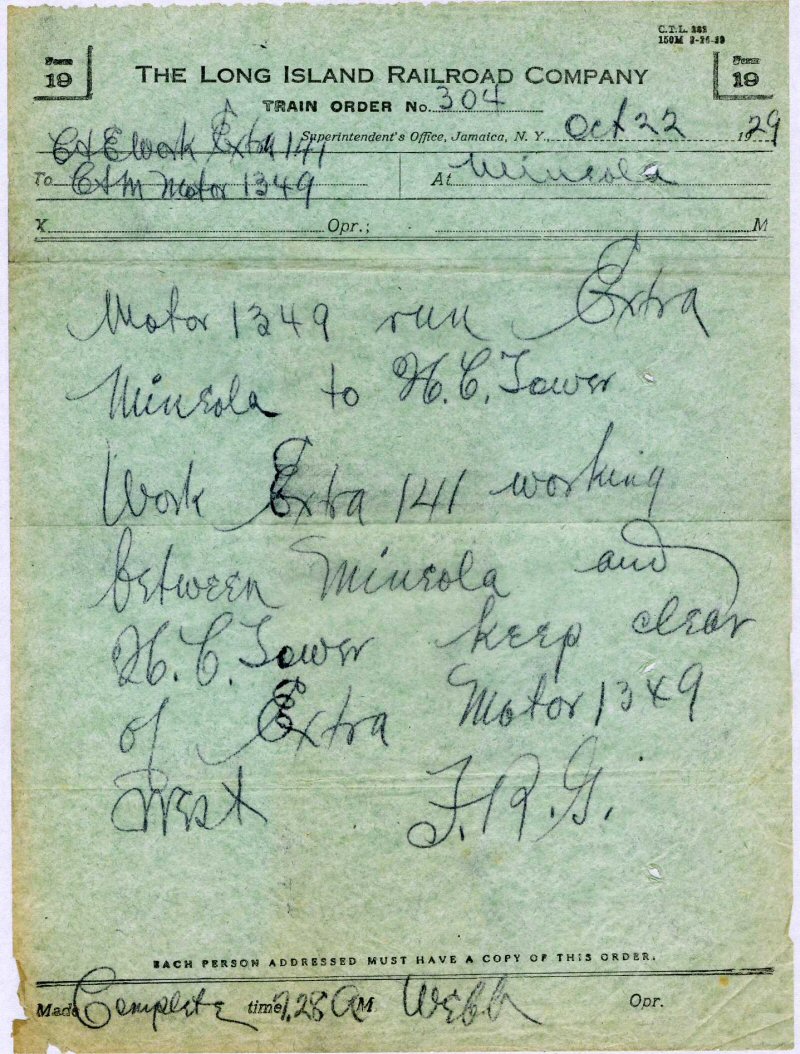 C.T.L. 282
150M 2-26-29
Form
19
Form
19
THE LONG ISLAND RAILROAD COMPANY
TRAIN ORDER No. 304
Superintendent's Office, Jamaica, N. Y., Oct 22 1929
C&E Work Extra 141
To C&M Motor 1349 At Mineola
X Opr.; M
Motor 1349 run Extra
Mineola to H.C. Tower
Work Extra 141 working
between Mineola and
H.C. Tower keep clear
of Extra Motor 1349
West F.R.G.
EACH PERSON ADDRESSED MUST HAVE A COPY OF THIS ORDER.
Made Complete time 7.28 AM Webb Opr.